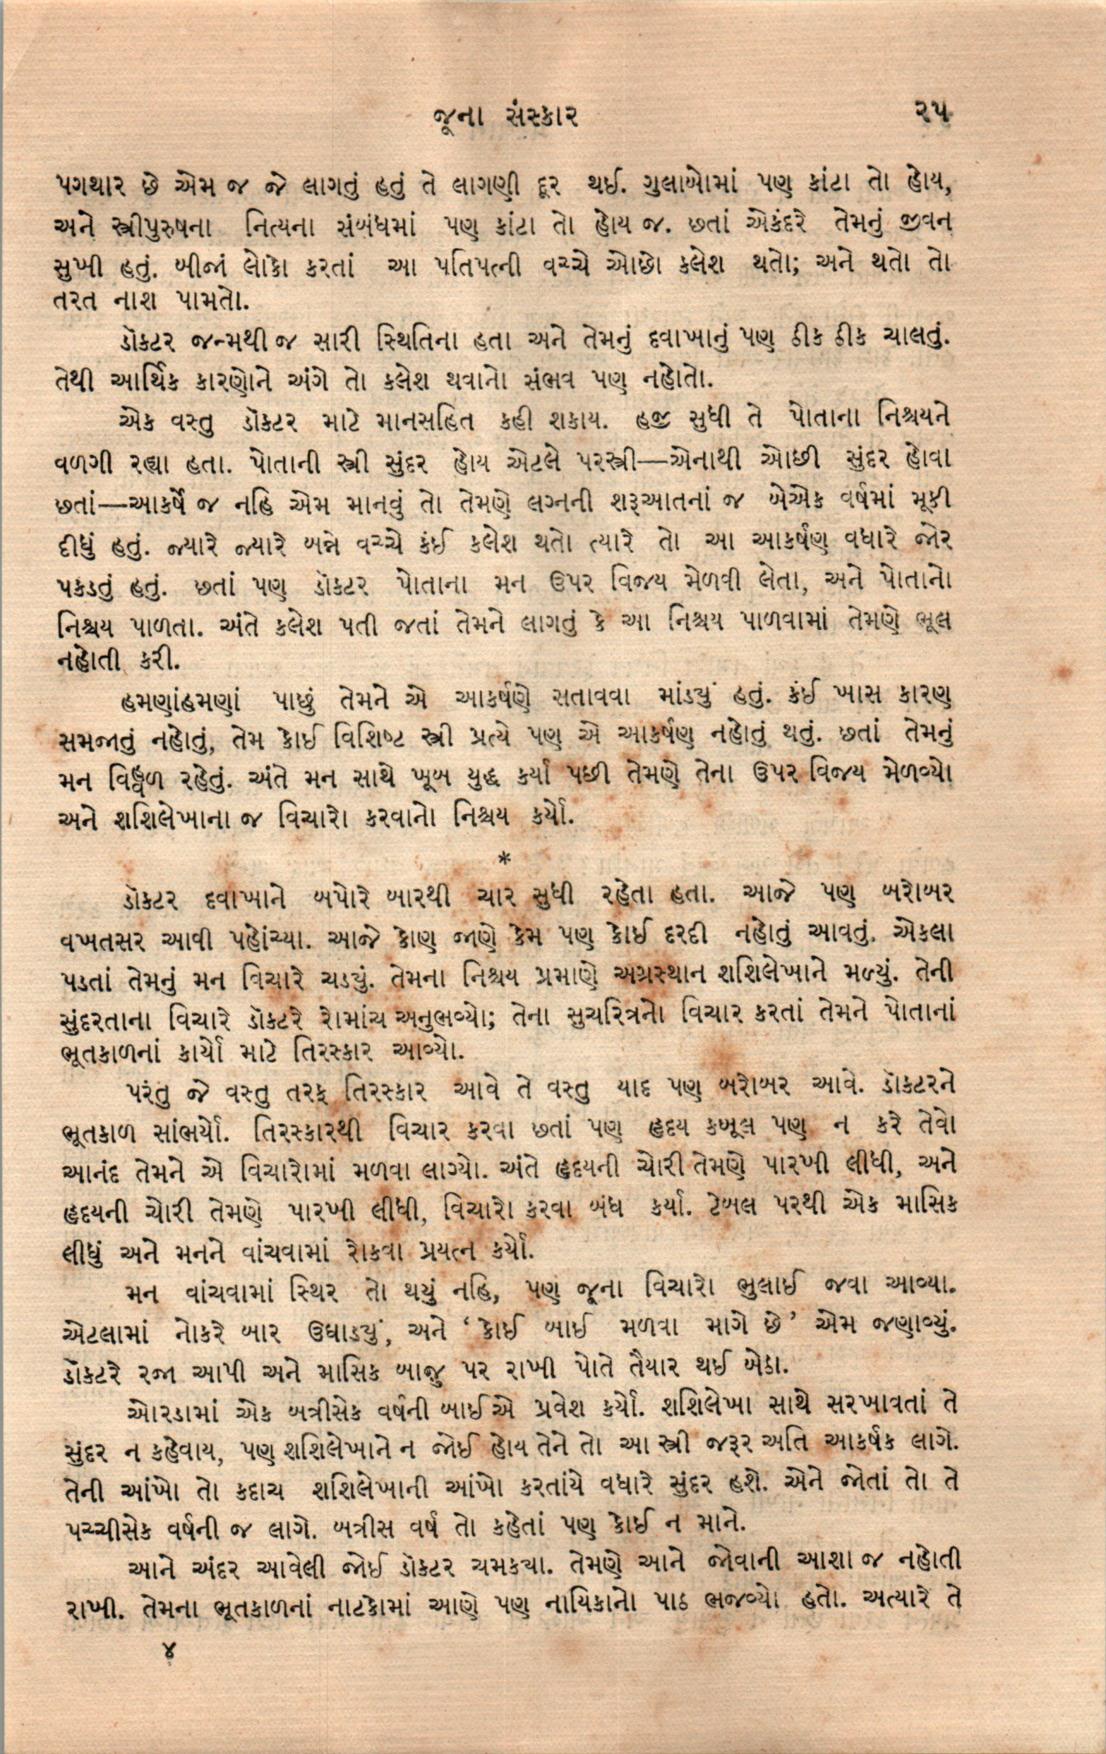 જૂના સંસ્કાર ૨૫
પગથાર છે એમ જ જે લાગતું હતું તે લાગણી દૂર થઈ. ગુલાબોમાં પણ કાંટા તો હોય,
અને સ્ત્રીપુરુષના નિત્યના સંબંધમાં પણ કાંટા તો હોય જ. છતાં એકંદરે તેમનું જીવન
સુખી હતું. બીજાં લોકો કરતાં આ પતિપત્ની વચ્ચે ઓછો કલેશ થતો; અને થતો તો
તરત નાશ પામતો.
ડૉક્ટર જન્મથી જ સારી સ્થિતિના હતા અને તેમનું દવાખાનું પણ ઠીક ઠીક ચાલતું.
તેથી આર્થિક કારણોને અંગે તો કલેશ થવાનો સંભવ પણ નહોતો.
એક વસ્તુ ડૉક્ટર માટે માનસહિત કહી શકાય. હજી સુધી તે પોતાના નિશ્ચયને
વળગી રહ્યા હતા. પોતાની સ્ત્રી સુંદર હોય એટલે પરસ્ત્રી—એનાથી ઓછી સુંદર હોવા
છતાં—આકર્ષે જ નહિ એમ માનવું તો તેમણે લગ્નની શરૂઆતનાં જ બેએક વર્ષમાં મૂકી
દીધું હતું. જ્યારે જ્યારે બન્ને વચ્ચે કંઈ કલેશ થતો ત્યારે તો આ આકર્ષણ વધારે જોર
પકડતું હતું. છતાં પણ ડૉક્ટર પોતાના મન ઉપર વિજય મેળવી લેતા, અને પોતાનો
નિશ્ચય પાળતા. અંતે કલેશ પતી જતાં તેમને લાગતું કે આ નિશ્ચય પાળવામાં તેમણે ભૂલ
નહોતી કરી.
હમણાંહમણાં પાછું તેમને એ આકર્ષણે સતાવવા માંડ્યું હતું. કંઈ ખાસ કારણ
સમજાતું નહોતું, તેમ કોઈ વિશિષ્ટ સ્ત્રી પ્રત્યે પણ એ આકર્ષણ નહોતું થતું. છતાં તેમનું
મન વિહ્વળ રહેતું. અંતે મન સાથે ખૂબ યુદ્ધ કર્યા પછી તેમણે તેના ઉપર વિજય મેળવ્યો
અને શશિલેખાના જ વિચારો કરવાનો નિશ્ચય કર્યો.
*
ડૉક્ટર દવાખાને બપોરે બારથી ચાર સુધી રહેતા હતા. આજે પણ બરોબર
વખતસર આવી પહોંચ્યા. આજે કોણ જાણે કેમ પણ કોઈ દરદી નહોતું આવતું. એકલા
પડતાં તેમનું મન વિચારે ચડ્યું. તેમના નિશ્ચય પ્રમાણે અગ્રસ્થાન શશિલેખાને મળ્યું. તેની
સુંદરતાના વિચારે ડૉક્ટરે રોમાંચ અનુભવ્યો; તેના સુચરિત્રનો વિચાર કરતાં તેમને પોતાનાં
ભૂતકાળનાં કાર્યો માટે તિરસ્કાર આવ્યો.
પરંતુ જે વસ્તુ તરફ તિરસ્કાર આવે તે વસ્તુ યાદ પણ બરોબર આવે. ડૉક્ટરને
ભૂતકાળ સાંભર્યો. તિરસ્કારથી વિચાર કરવા છતાં પણ હૃદય કબૂલ પણ ન કરે તેવો
આનંદ તેમને એ વિચારોમાં મળવા લાગ્યો. અંતે હૃદયની ચોરી તેમણે પારખી લીધી, અને
હૃદયની ચોરી તેમણે પારખી લીધી, વિચારો કરવા બંધ કર્યા. ટેબલ પરથી એક માસિક
લીધું અને મનને વાંચવામાં રોકવા પ્રયત્ન કર્યો.
મન વાંચવામાં સ્થિર તો થયું નહિ, પણ જૂના વિચારો ભુલાઈ જવા આવ્યા.
એટલામાં નોકરે બાર ઉઘાડ્યું, અને ‘ કોઈ બાઈ મળવા માગે છે ’ એમ જણાવ્યું.
ડૉક્ટરે રજા આપી અને માસિક બાજુ પર રાખી પોતે તૈયાર થઈ બેઠા.
ઓરડામાં એક બત્રીસેક વર્ષની બાઈએ પ્રવેશ કર્યો. શશિલેખા સાથે સરખાવતાં તે
સુંદર ન કહેવાય, પણ શશિલેખાને ન જોઈ હોય તેને તો આ સ્ત્રી જરૂર અતિ આકર્ષક લાગે.
તેની આંખો તો કદાચ શશિલેખાની આંખો કરતાંયે વધારે સુંદર હશે. એને જોતાં તો તે
પચ્ચીસેક વર્ષની જ લાગે. બત્રીસ વર્ષ તો કહેતાં પણ કોઈ ન માને.
આને અંદર આવેલી જોઈ ડૉક્ટર ચમક્યા. તેમણે આને જોવાની આશા જ નહોતી
રાખી. તેમના ભૂતકાળનાં નાટકોમાં આણે પણ નાયિકાનો પાઠ ભજવ્યો હતો. અત્યારે તે
૪